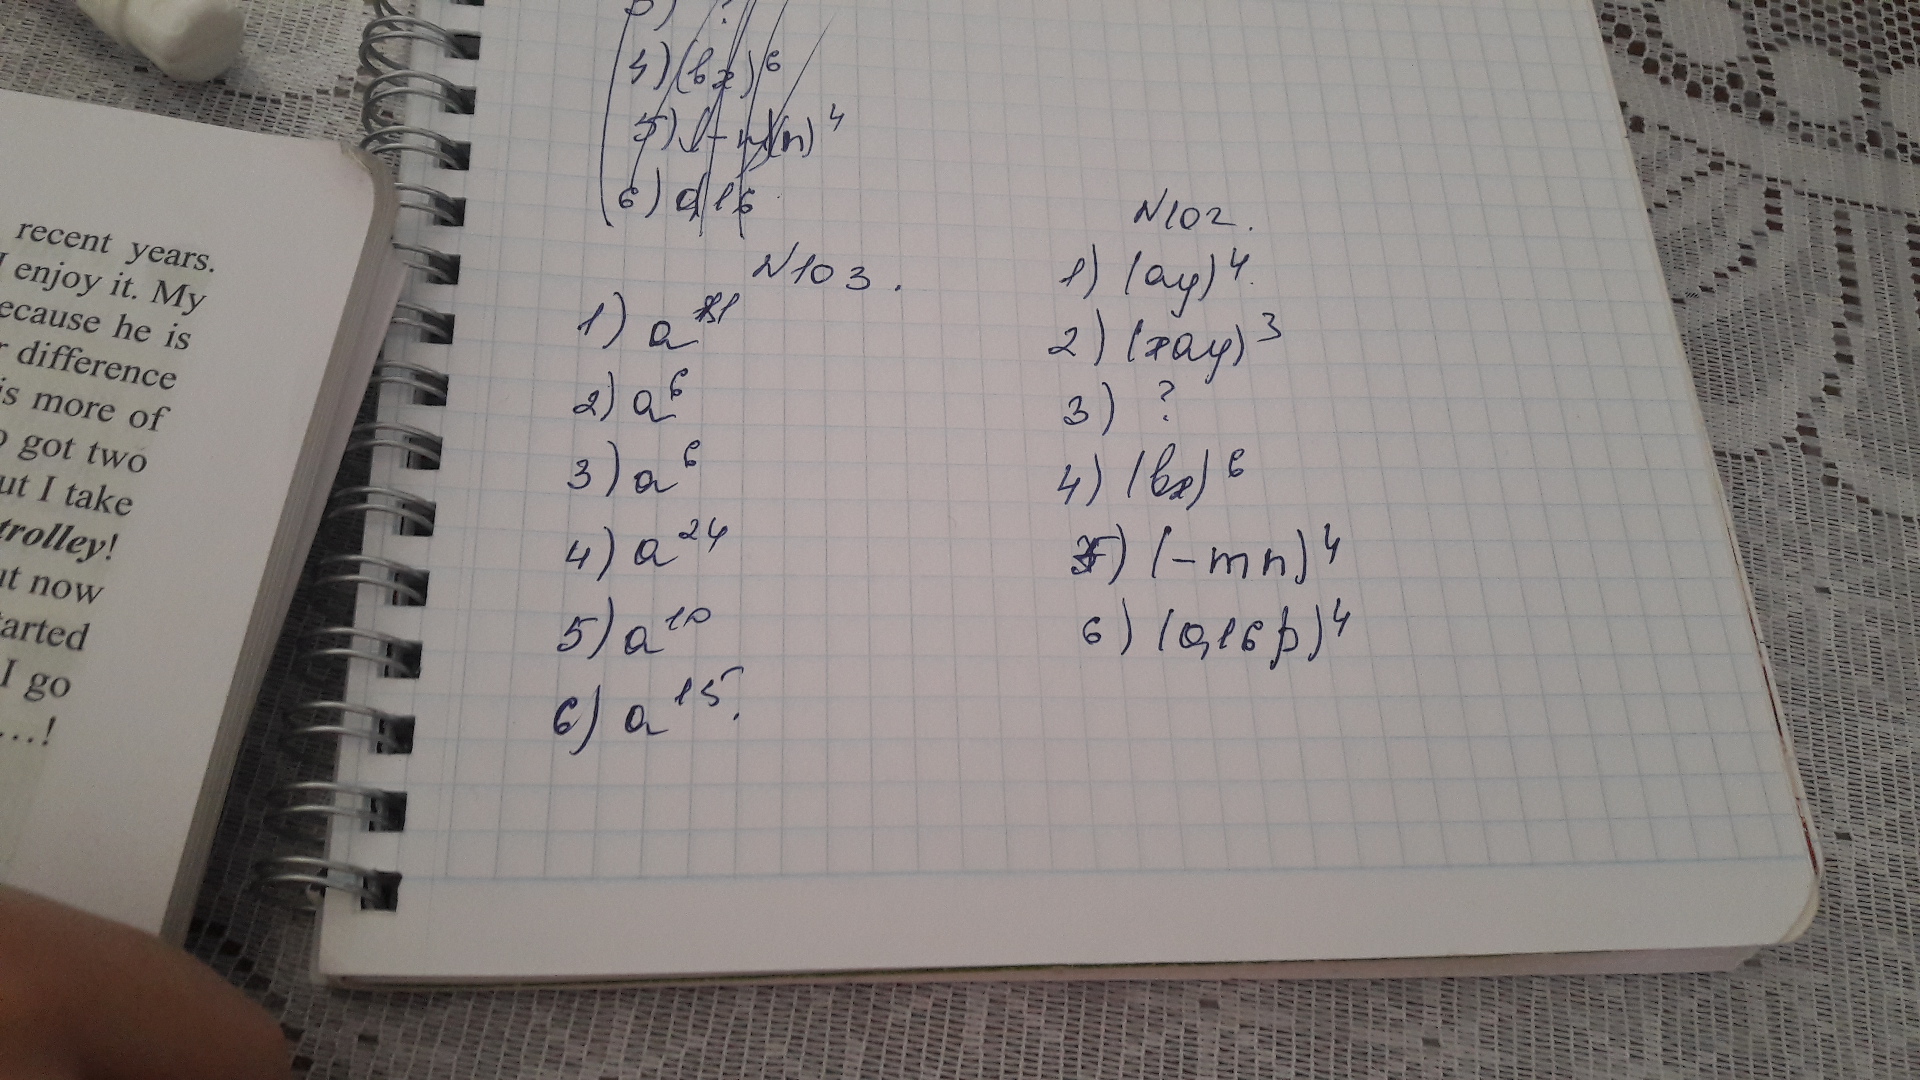 recent years.
I enjoy it. My
ecause he is
r difference
is more of
o got two
ut I take
trolley!
ut now
tarted
I go
...!
3) ?
4) (bx)⁶
5) (-m)(n)⁴
6) 0,16
N103.
1) a
2) a⁶
3) a⁶
4) a²⁴
5) a¹⁰
6) a¹⁵.
N102.
1) (ay)⁴.
2) (xay)³
3) ?
4) (bx)⁶
5) (-mn)⁴
6) (0,16p)⁴